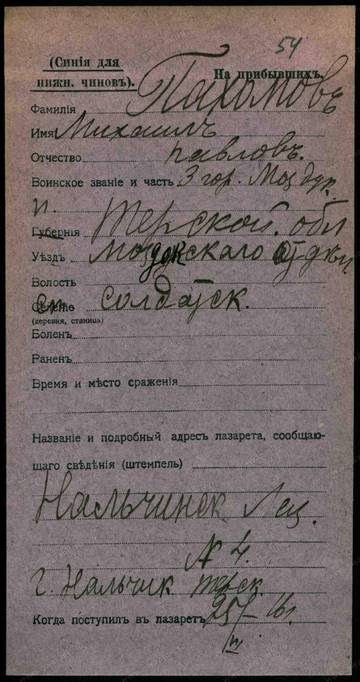 54
(Синія для
нижн. чиновъ).
На прибывшихъ.
Фамилія Пахомовъ
Имя Михаилъ
Отчество павловъ.
Воинское званіе и часть 3 гор. Мозд
п.
Губернія Терской. обл
Уѣздъ моздокскаго отдѣл
Волость
Селеніе солдатск.
(деревня, станица)
Боленъ
Раненъ
Время и мѣсто сраженія
Названіе и подробный адресъ лазарета, сообщаю-
щаго свѣдѣнія (штемпель)
Нальчинск Лаз.
N 4.
г. Нальчик терск.
Когда поступилъ въ лазаретъ 25/III–16г.